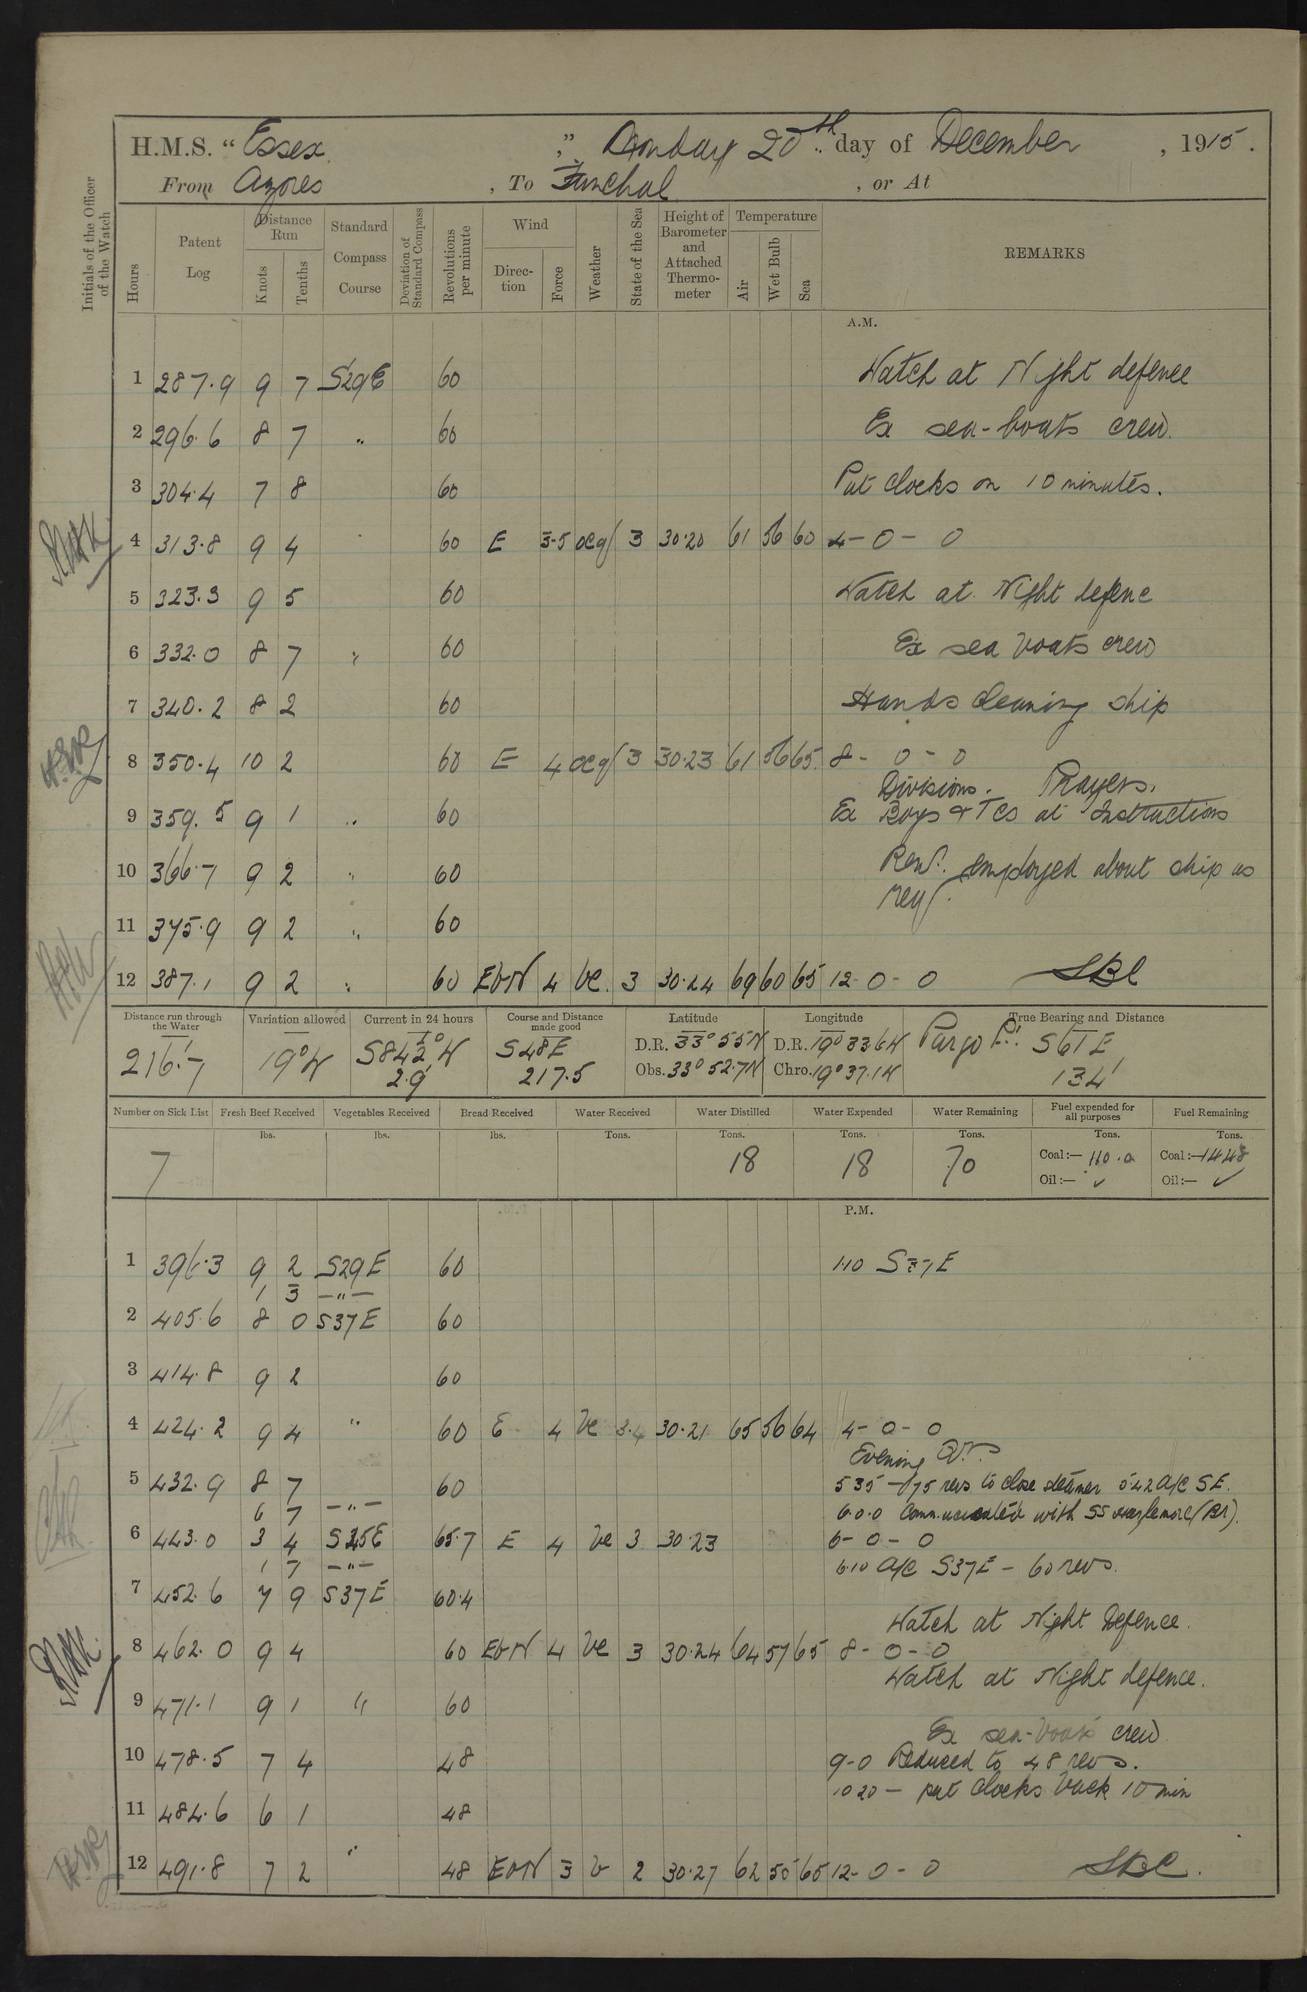 H.M.S. "Essex", Monday 20th day of December, 1915.
From Azores, To Funchal, or At
Initials of the Officer of the Watch
Hours
Patent Log
Distance Run
Knots
Tenths
Standard Compass Course
Deviation of Standard Compass
Revolutions per minute
Wind
Direction
Force
Weather
State of the Sea
Height of Barometer and Attached Thermometer
Temperature
Air
Wet Bulb
Sea
REMARKS
A.M.
1 287.9 9 7 S29E 60 Watch at Night defence
2 296.6 8 7 " 60 Ex sea-boats crew.
3 304.4 7 8 60 Put clocks on 10 minutes.
4 313.8 9 4 60 E 3-5 ocq 3 30.20 61 56 60 4-0-0
5 323.3 9 5 60 Watch at Night defence
6 332.0 8 7 " 60 Ex sea boats crew
7 340.2 8 2 60 Hands cleaning ship
8 350.4 10 2 60 E 4 ocq 3 30.23 61 56 65 8-0-0
Divisions. Prayers.
9 359.5 9 1 " 60 Ex Boys & TCs at Instructions
10 366.7 9 2 " 60 Remr. employed about ship as
req.
11 375.9 9 2 " 60
12 387.1 9 2 " 60 EbN 4 bc. 3 30.24 69 60 65 12-0-0 SBC
Distance run through the Water
216.7
Variation allowed
19°W
Current in 24 hours
S84½°W
2.9'
Course and Distance made good
S48E
217.5
Latitude
D.R. 33° 55N
Obs. 33° 52.7N
Longitude
D.R. 19° 33.6W
Chro. 19° 37.1W
True Bearing and Distance
Pargo Pt. S61E
134'
Number on Sick List
7
Fresh Beef Received
lbs.
Vegetables Received
lbs.
Bread Received
lbs.
Water Received
Tons.
Water Distilled
Tons.
18
Water Expended
Tons.
18
Water Remaining
Tons.
70
Fuel expended for all purposes
Tons.
Coal:— 110.0
Oil:— ✓
Fuel Remaining
Tons.
Coal:— 1448
Oil:— ✓
P.M.
1 396.3 9 2 S29E 60 1.10 S37E
1 3 -"-
2 405.6 8 0 S37E 60
3 414.8 9 2 60
4 424.2 9 4 " 60 E 4 bc 3.4 30.21 65 56 64 4-0-0
Evening Qrs
5 432.9 8 7 60 535 - 75 revs to close steamer 5.42 A/C SE.
6 7 -"- 6.0.0 Communicated with SS (Br).
6 443.0 3 4 S45E 65.7 E 4 bc 3 30.23 6-0-0
1 7 -"- 6.10 A/C S37E - 60 revs.
7 452.6 7 9 S37E 60.4
Watch at Night Defence.
8 462.0 9 4 60 EbN 4 bc 3 30.24 64 57 65 8-0-0
Watch at Night defence.
9 471.1 9 1 " 60
Ex sea-boats crew
10 478.5 7 4 48 9-0 Reduced to 48 revs.
1020 - put clocks back 10 min
11 484.6 6 1 48
12 491.8 7 2 " 48 EbN 3 b 2 30.27 62 55 65 12-0-0 SBC.